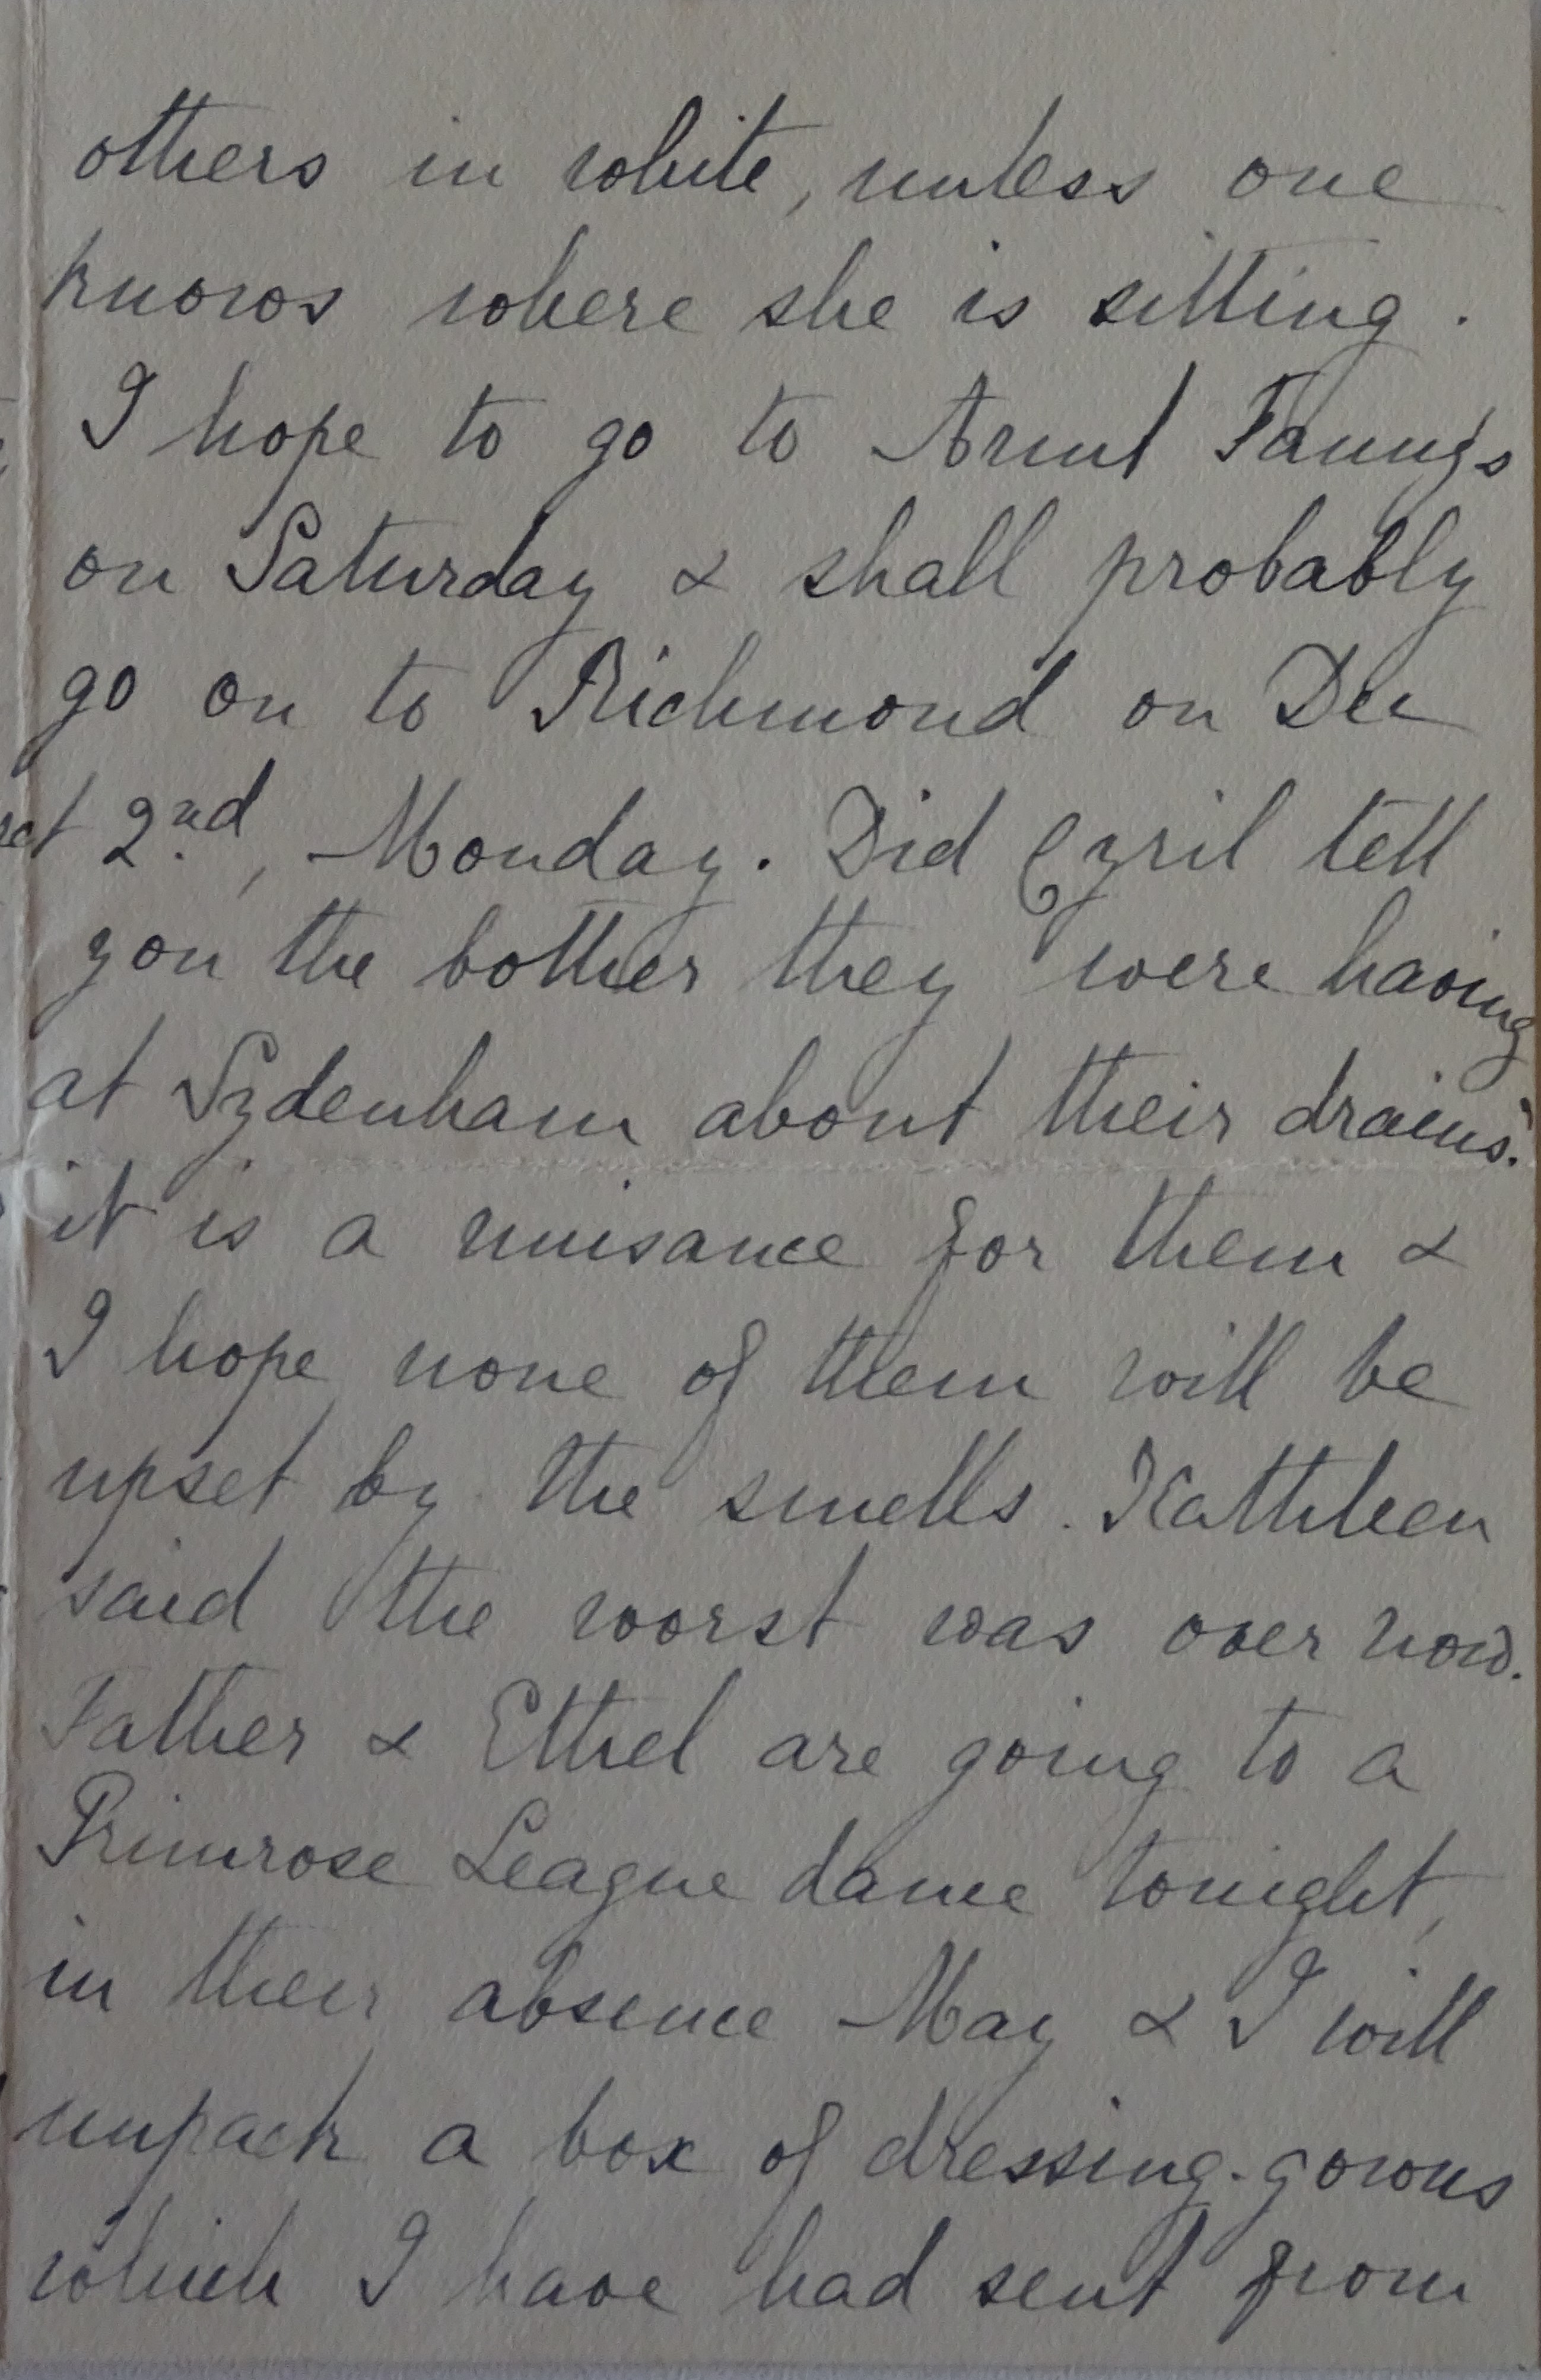 others in white, unless one
knows where she is sitting.
I hope to go to Aunt Fanny's
on Saturday & shall probably
go on to Richmond on Dec
2nd, Monday. Did Cyril tell
you the bother they were having
at Sydenham about their drains?
it is a nuisance for them &
I hope none of them will be
upset by the smells. Kathleen
said the worst was over now.
Father & Ethel are going to a
Primrose League dance tonight,
in their absence May & I will
unpack a box of dressing-gowns
which I have had sent from